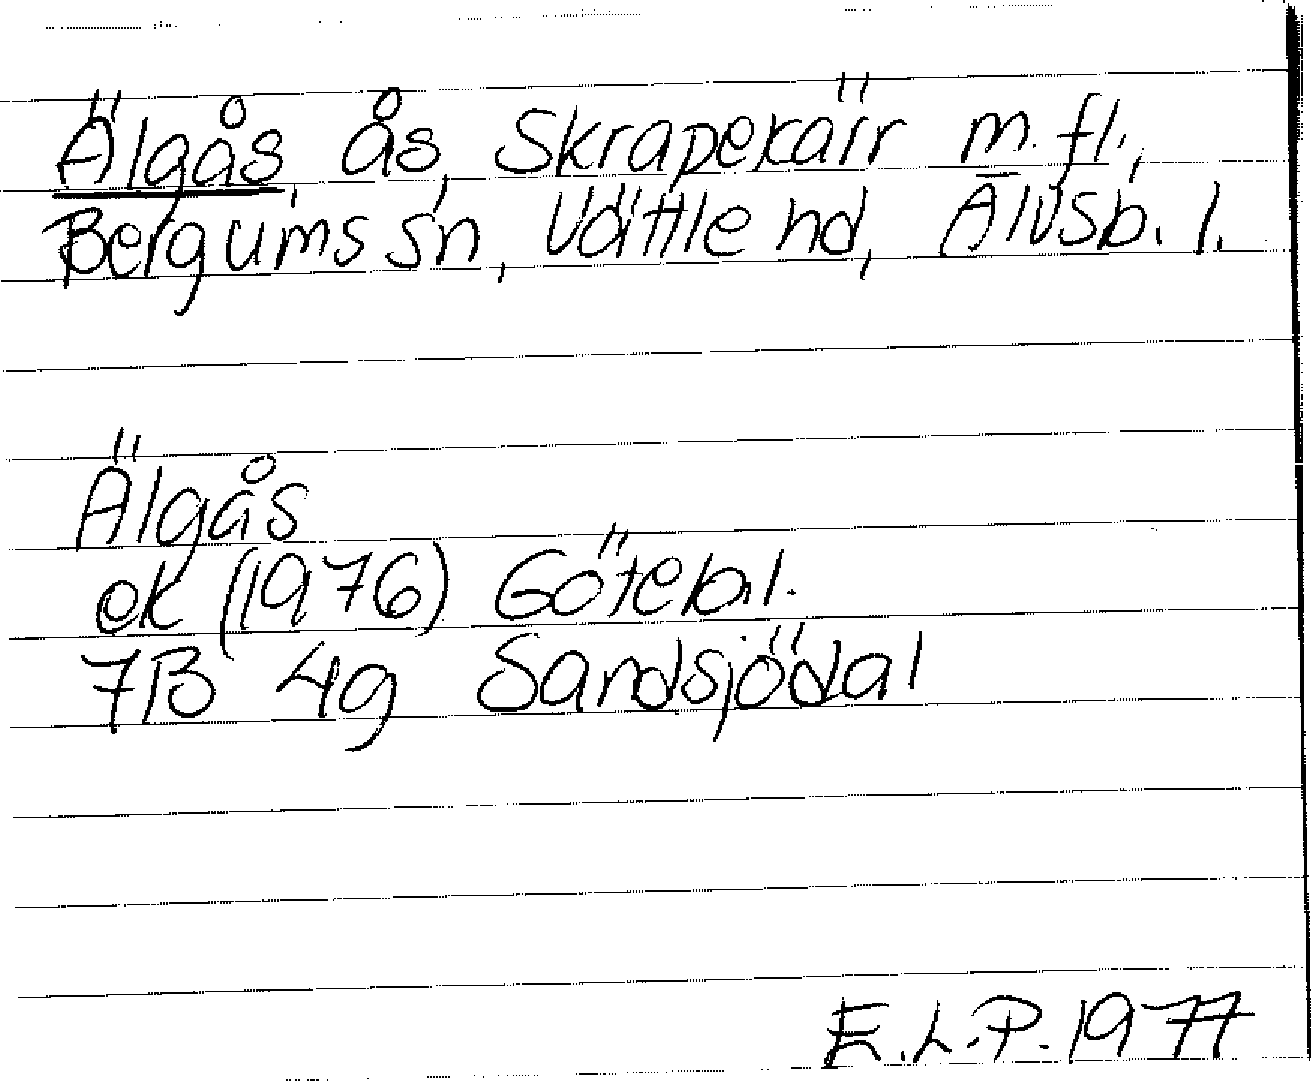 Älgås, ås, Skrapekärr m. fl.,
Bergums sn, Vättle hd, Älvsb. l.
Älgås
ek (1976) Göteb.l.
7B 4g Sandsjödal
E.L.P. 1977